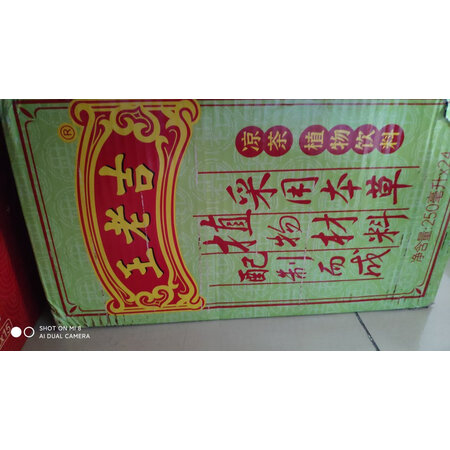 王老吉
®
凉茶 植物饮料
采用本草
植物材料
配制而成
净含量:250毫升×24
SHOT ON MI 8
AI DUAL CAMERA